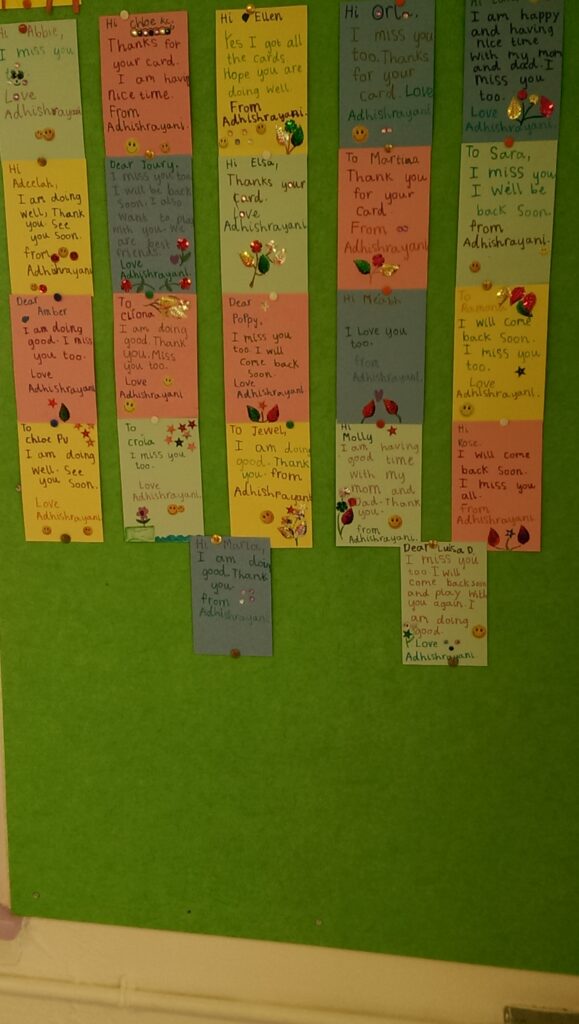 Hi Abbie,
I miss you
Love
Adhishrayani
Hi
Adeelah,
I am doing
well, Thank
you. See
you Soon.
from
Adhishrayani.
Dear
Amber
I am doing
good. I miss
you too.
Love
Adhishrayani
To
chloe PU
I am doing
Well. See
you Soon.
Love
Adhishrayani.
Hi chloe kc.
Thanks for
your card.
I am having
nice time.
From
Adhishrayani.
Dear Joury.
I miss you too
I will be back
Soon. I also
want to play
with you. We
are best
friends.
Love
Adhishrayani.
To
Cliona
I am doing
good. Thank
you. Miss
you too.
Love
Adhishrayani.
To
crola
I miss you
too.
Love
Adhishrayani.
Hi Ellen
Yes I got all
the cards
Hope you are
doing well.
From
Adhishrayani.
Hi Elsa,
Thanks your
card.
love
Adhishrayani
Dear
Poppy,
I miss you
too I will
come back
Soon.
Love
Adhishrayani.
To Jewel,
I am doing
good. Thank
you. from
Adhishrayani
Hi
I miss you
too. Thanks
for your
card. Love
Adhishrayani
To Martina
Thank you
for your
card.
From
Adhishrayani
Hi
I love you
too.
from
Adhishrayani.
Hi
Molly
I am having
good time
with my
mom and
Dad. Thank
you.
from
Adhishrayani.
I am happy
and having
nice time
with my mom
and dad. I
miss you
too.
Love
Adhishrayani.
To Sara,
I miss you
We'll be
back Soon.
from
Adhishrayani.
To
I will come
back Soon.
I miss you
too.
Love
Adhishrayani.
Hi
Rose.
I will come
back Soon.
I miss you
all.
From
Adhishrayani.
Hi
I am doin
good. Thank
you.
from
Adhishrayani.
Dear Luisa D.
I miss you
too. I will
come back soon
and play with
you again. I
am doing
good.
Love
Adhishrayani.